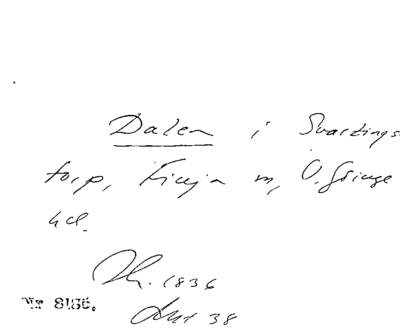 Dalen i Svartings
torp, Finja m, Ö. Göinge
hd.
1836
Nr 8136.
38